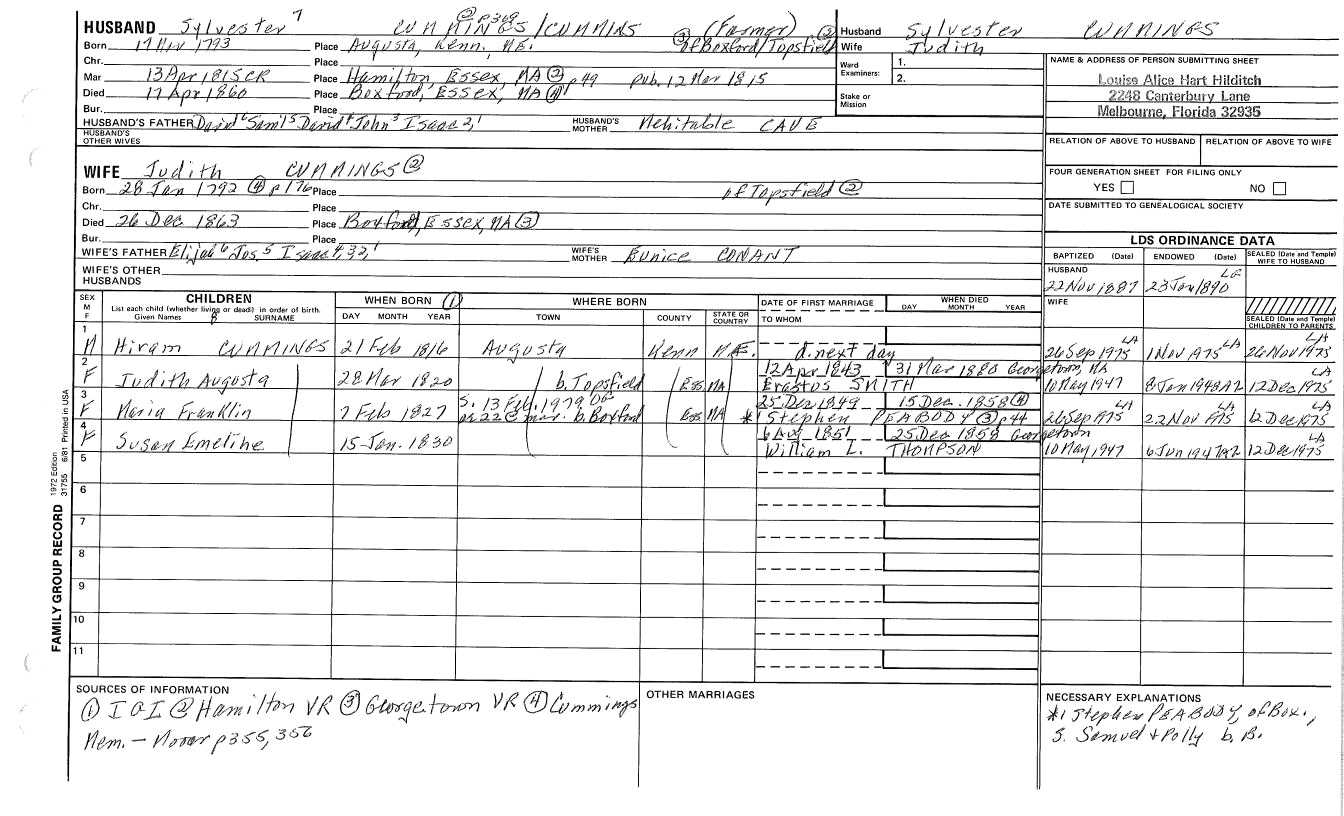 ② p369
HUSBAND Sylvester 7 CUMMINGS/CUMMINS (Farmer)
③ of Boxford/Topsfield ②
Born 17 Nov 1793 Place Augusta, Kenn, ME.
Chr. Place
Mar 13 Apr 1815 CR Place Hamilton, Essex, MA ② p 49 pub. 12 Mar 1815
Died 17 Apr 1860 Place Boxford, Essex, MA ④
Bur. Place
HUSBAND'S FATHER David 6 Saml 5 David 4 John 3 Isaac 2,1 HUSBAND'S MOTHER Mehitable CAVE
HUSBAND'S OTHER WIVES
WIFE Judith CUMMINGS ②
Born 28 Jan 1792 ④ p176 Place of Topsfield ②
Chr. Place
Died 26 Dec 1863 Place Boxford, Essex, MA ③
Bur. Place
WIFE'S FATHER Elijah 6 Jos. 5 Isaac 4,3,2,1 WIFE'S MOTHER Eunice CONANT
WIFE'S OTHER HUSBANDS
Husband Sylvester CUMMINGS
Wife Judith
Ward Examiners: 1.
2.
Stake or Mission
NAME & ADDRESS OF PERSON SUBMITTING SHEET
Louise Alice Hart Hilditch
2248 Canterbury Lane
Melbourne, Florida 32935
RELATION OF ABOVE TO HUSBAND RELATION OF ABOVE TO WIFE
FOUR GENERATION SHEET FOR FILING ONLY
YES NO
DATE SUBMITTED TO GENEALOGICAL SOCIETY
LDS ORDINANCE DATA
BAPTIZED (Date) ENDOWED (Date) SEALED (Date and Temple) WIFE TO HUSBAND
HUSBAND LG
22 Nov 1887 23 Jan 1890
WIFE
SEALED (Date and Temple) CHILDREN TO PARENTS
SEX M F CHILDREN WHEN BORN ① WHERE BORN DATE OF FIRST MARRIAGE WHEN DIED
List each child (whether living or dead) in order of birth.
Given Names 8 SURNAME DAY MONTH YEAR TOWN COUNTY STATE OR COUNTRY TO WHOM DAY MONTH YEAR
1 M Hiram CUMMINGS 21 Feb 1816 Augusta Kenn ME. d. next day 26 Sep 1975 LA 1 Nov 1975 LA 26 Nov 1975 LA
2 F Judith Augusta 28 Mar 1820 b. Topsfield Ess MA 12 Apr 1843 31 Mar 1880 Georgetown, MA
Erastus SMITH 10 May 1947 8 Jan 1948 AZ 12 Dec 1975 LA
3 F Maria Franklin 7 Feb 1827 S. 13 Feb. 1979 OG
or 22 @ mar. b. Boxford Ess MA 25 Dec 1849 15 Dec. 1858 ④
*1 Stephen PEABODY ③ p 44 26 Sep 1975 LA 22 Nov 1975 LA 12 Dec 1975 LA
4 F Susan Emeline 15 Jan. 1830 6 Aug 1851 25 Dec 1858 Georgetown
William L. THOMPSON 10 May 1947 6 Jun 1947 AZ 12 Dec 1975 LA
5
6
7
8
9
10
11
FAMILY GROUP RECORD 1972 Edition 31755 6/81 Printed in USA
SOURCES OF INFORMATION
① IGI ② Hamilton VR ③ Georgetown VR ④ Cummings
Mem. – Mooar p355, 356
OTHER MARRIAGES
NECESSARY EXPLANATIONS
*1 Stephen PEABODY, of Box.,
s. Samuel + Polly b. B.